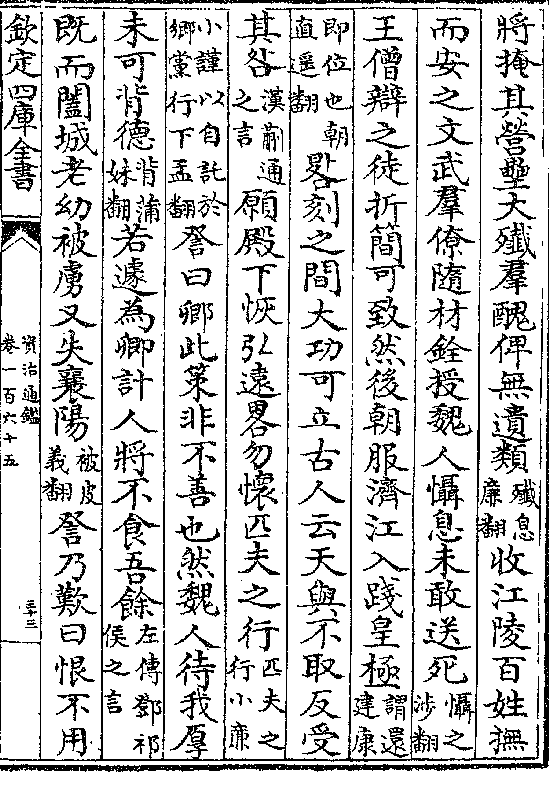 將掩其營壘大殲羣醜俾無遺類殲息廉翻收江陵百姓撫
而安之文武羣僚隨材銓授魏人懾息未敢送死懾之涉翻
王僧辯之徒折簡可致然後朝服濟江入踐皇極謂還建康
即位也朝直遥翻晷刻之間大功可立古人云天與不取反受
其咎漢蒯通之言願殿下恢弘遠畧勿懷匹夫之行匹夫之行小廉
小謹以自託於鄉黨行下孟翻詧曰卿此策非不善也然魏人待我厚
未可背德背蒲妹翻若遽為卿計人將不食吾餘左傳鄧祁侯之言
既而闔城老幼被虜又失襄陽被皮義翻詧乃歎曰恨不用
欽定四庫全書
資治通鑑
卷一百六十五
三十三